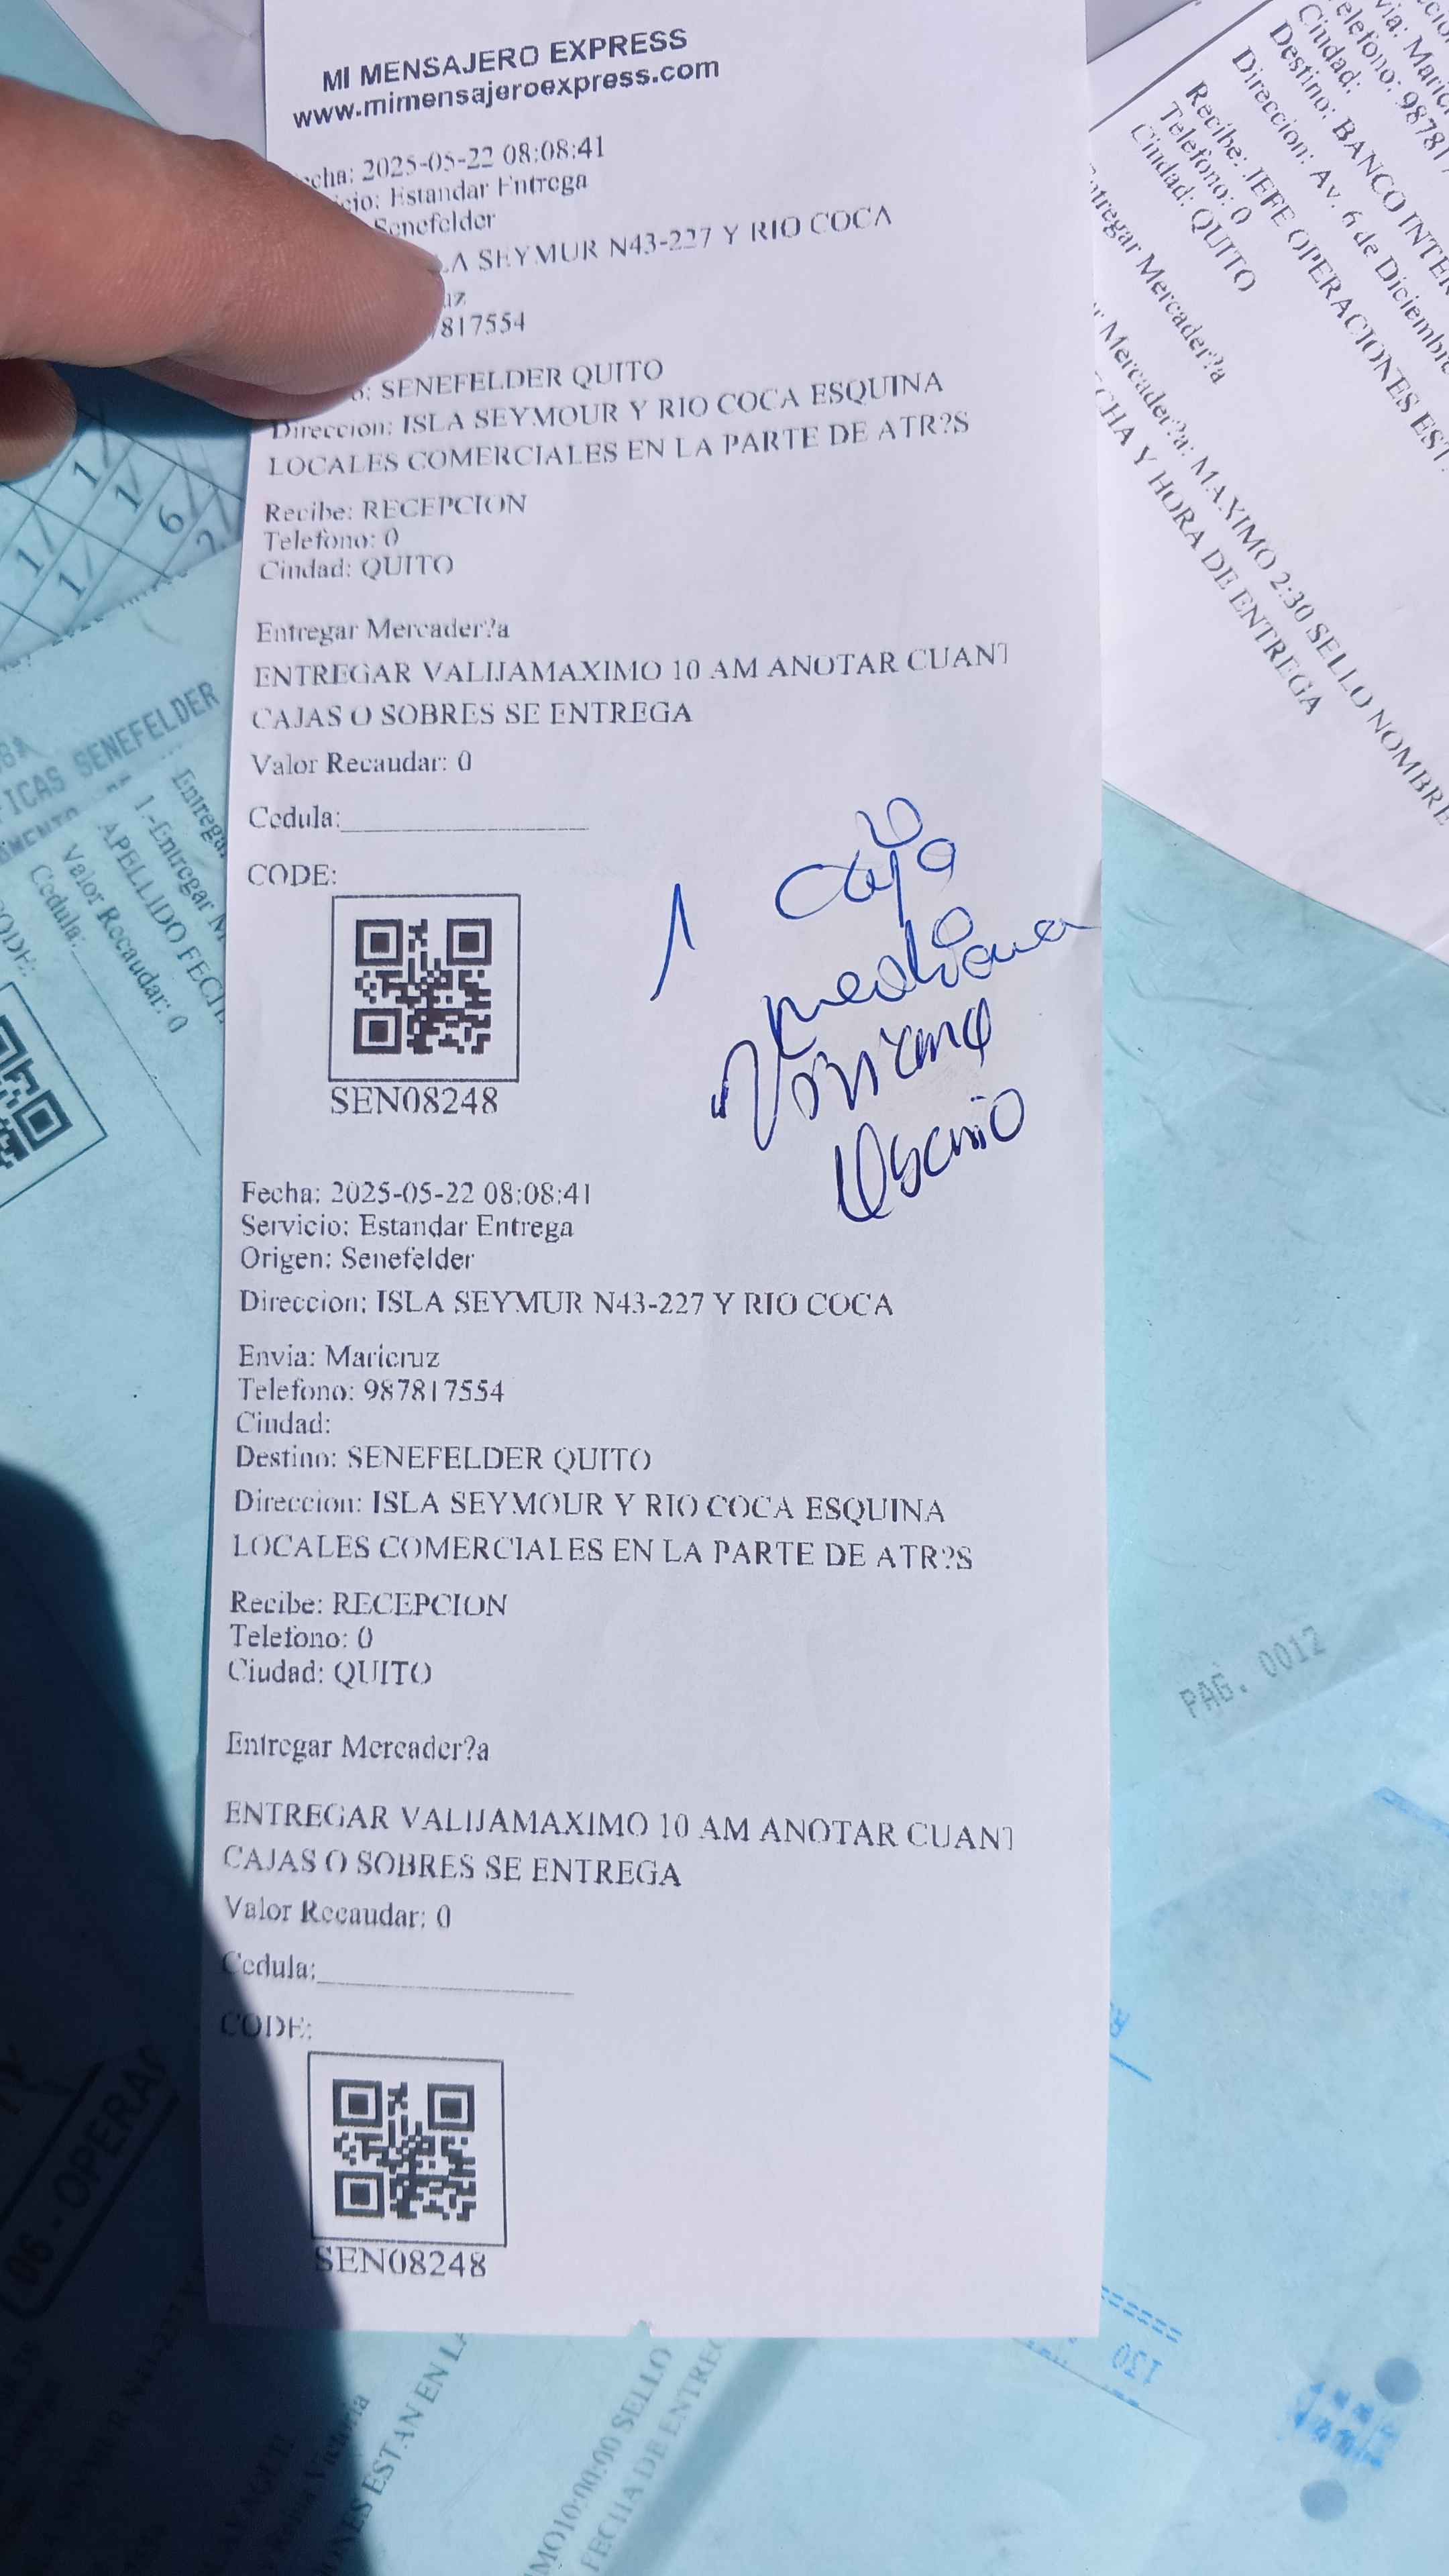 MI MENSAJERO EXPRESS
www.mimensajeroexpress.com
cha: 2025-05-22 08:08:41
cio: Estandar Entrega
Senefelder
LA SEYMUR N43-227 Y RIO COCA
uz
817554
o: SENEFELDER QUITO
Direccion: ISLA SEYMOUR Y RIO COCA ESQUINA
LOCALES COMERCIALES EN LA PARTE DE ATR?S
Recibe: RECEPCION
Telefono: 0
Ciudad: QUITO
Entregar Mercader?a
ENTREGAR VALIJAMAXIMO 10 AM ANOTAR CUANT
CAJAS O SOBRES SE ENTREGA
Valor Recaudar: 0
Cedula:
CODE:
1 caja
mediana
SEN08248
Fecha: 2025-05-22 08:08:41
Servicio: Estandar Entrega
Origen: Senefelder
Direccion: ISLA SEYMUR N43-227 Y RIO COCA
Envia: Maricruz
Telefono: 987817554
Ciudad:
Destino: SENEFELDER QUITO
Direccion: ISLA SEYMOUR Y RIO COCA ESQUINA
LOCALES COMERCIALES EN LA PARTE DE ATR?S
Recibe: RECEPCION
Telefono: 0
Ciudad: QUITO
Entregar Mercader?a
ENTREGAR VALIJAMAXIMO 10 AM ANOTAR CUANT
CAJAS O SOBRES SE ENTREGA
Valor Recaudar: 0
Cedula:
CODE:
SEN08248
via: Maric
elefono: 98781
Ciudad:
Destino: BANCO INTER
Direccion: Av. 6 de Diciembre
Recibe: JEFE OPERACIONES EST
Telefono: 0
Ciudad: QUITO
ntregar Mercader?a
r Mercader?a: MAXIMO 2:30 SELLO NOMBRE
CHA Y HORA DE ENTREGA
ICAS SENEFELDER
Entregar
1.-Entregar M
APELLIDO FECH
Valor Recaudar: 0
Cedula:
ODE:
PAG. 0012
06 - OPERAC
120
NES ESTAN EN LA
MO10:00:00 SELLO
FECHA DE ENTREG